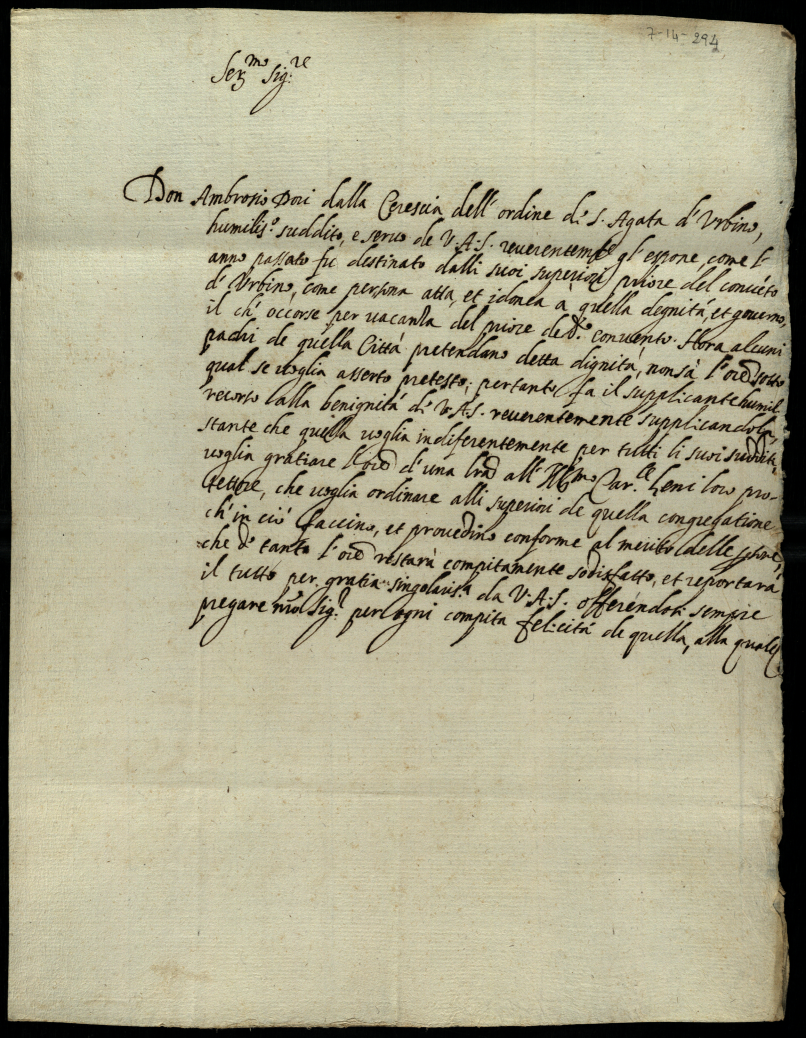 7-14-294
Ser.mo Sig.re
Don Ambrosio Dori dalla Cerescia dell' ordine di S. Agata d' Urbino,
humiliss.o suddito, e servo de V. A. S. reverentemte gl' espone, come l'
anno passato fu destinato dalli suoi superiori priore del convéto
d' Urbino, come persona atta, et idonea à quella degnità, et governo,
il ch' occorse per vacanza del priore de d.o convento. Hora alcuni
padri de quella Città pretendano detta dignità, non sà l' ore sotto
qual se voglia asserto pretesto; pertanto fa il supplicante humil
recorso alla benignità di V. A. S. reverentemente supplicandola,
stante che quella voglia indiferentemente per tutti li suoi sudditi,
voglia gratiare l' ore d' una lra all' Ill.mo Car.le Leni loro pro-
tettore, che voglia ordinare alli superiori de quella congregatione
ch' in ciò faccino, et provedino conforme al merito delle psone,
che d' tanto l' ore restarà compitamente sodisfatto, et reportarà
il tutto per gratia singolariss.a da V. A. S. offeréndosi sempre
pregare nro Sig.e per ogni compita felicità de quella, alla quale